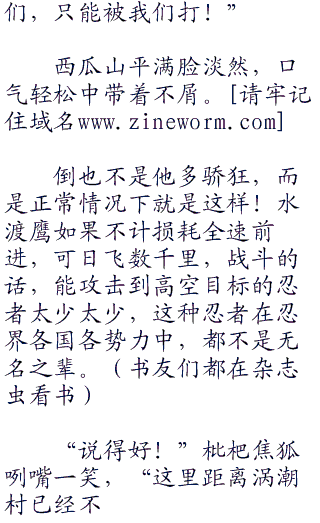 们，只能被我们打！”
西瓜山平满脸淡然，口
气轻松中带着不屑。[请牢记
住域名www.zineworm.com]
倒也不是他多骄狂，而
是正常情况下就是这样！水
渡鹰如果不计损耗全速前
进，可日飞数千里，战斗的
话，能攻击到高空目标的忍
者太少太少，这种忍者在忍
界各国各势力中，都不是无
名之辈。（书友们都在杂志
虫看书）
“说得好！”枇杷焦狐
咧嘴一笑，“这里距离涡潮
村已经不